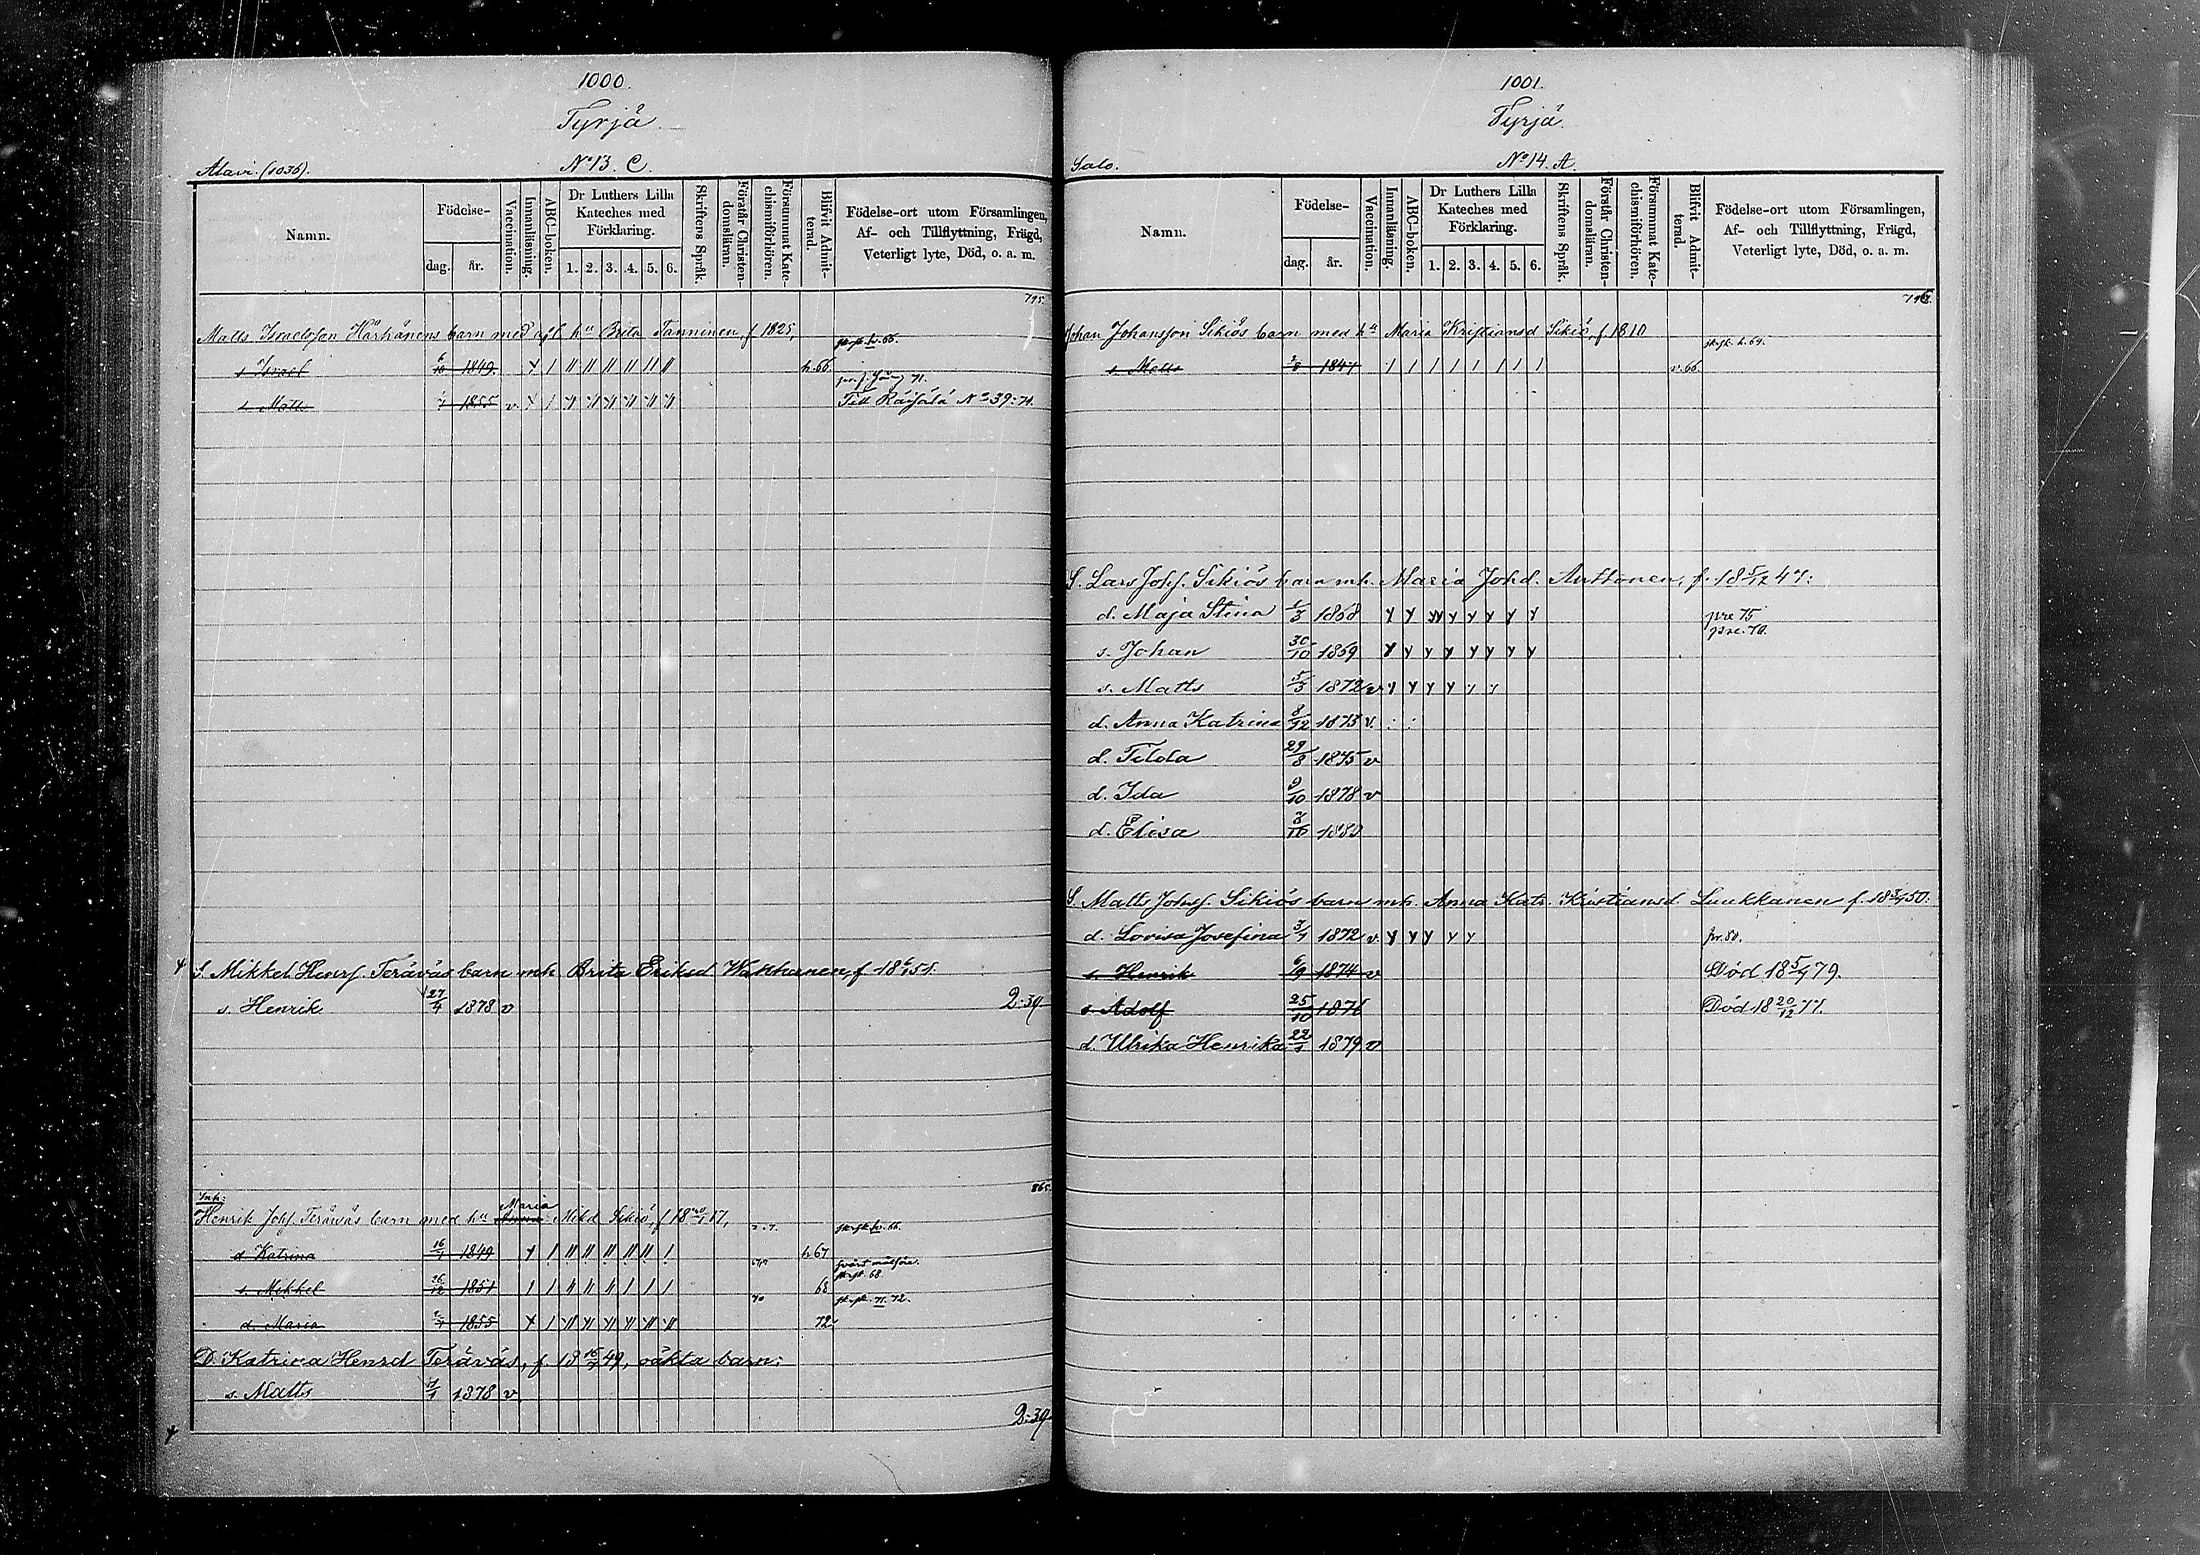 1000.
Tyrjä.
Alavi. (1036). No 13. C.
Namn.
Födelse-
dag. år.
Vaccination.
Innanläsning.
ABC-boken.
Dr Luthers Lilla Kateches med Förklaring.
1. 2. 3. 4. 5. 6.
Skriftens Språk.
Förstår Christendomsläran.
Försummat Katechismiförhören.
Blifvit Admitterad.
Födelse-ort utom Församlingen,
Af- och Tillflyttning, Frägd,
Veterligt lyte, Död, o. a. m.
795.
Matts Israelsson Härkänens barn med Brita Tanninen, f 1825,
s. Israel 6/10 1849. h. 66.
s. Matts 1855 v. Till Räisälä No 39: 71.
S. Mikkel Henrs. Teräväs barn mh. Brita Eriksd
s. Henrik 27/4 1878 v
2:39
865.
Inh:
Maria
Henrik Johs. Teräväs barn med hu Anna Mikd Sikiö, f 17,
d Katrina 1849 h 67
s. Mikkel 26/12 1851 68
d. Maria 1855 72
D. Katrina Henrd Teräväs, f. 49, oäkta barn:
s. Matts 1878 v
2:39
1001.
Tyrjä.
Salo. No 14. A.
Namn.
Födelse-
dag. år.
Vaccination.
Innanläsning.
ABC-boken.
Dr Luthers Lilla Kateches med Förklaring.
1. 2. 3. 4. 5. 6.
Skriftens Språk.
Förstår Christendomsläran.
Försummat Katechismiförhören.
Blifvit Admitterad.
Födelse-ort utom Församlingen,
Af- och Tillflyttning, Frägd,
Veterligt lyte, Död, o. a. m.
Johan Johansson Sikiös barn med hu Maria Kristiansd Sikiö, f 1810
s. Matts 1847 v. 66.
S. Lars Johs. Sikiös barn mh. Maria Johd. Anttonen, f. 18 5/12 47:
d. Maja Stina 1/3 1868 pre 75
s. Johan 30/10 1869
s. Matts 5/3 1872 v
d. Anna Katrina 8/12 1873 v.
d. Tilda 29/8 1875 v
d. Ida 9/10 1878 v
d. Elisa 1880
S. Matts Johs. Sikiös barn mh. Anna Katr. Kristiansd Luukkanen f. 50:
d. Lovisa Josefina 1872 v. pr. 80.
s. Henrik 6/9 1874 v Död 79.
s. Adolf 25/10 1876 Död 18 20/12 77.
d. Ulrika Henrika 22/1 1879 v